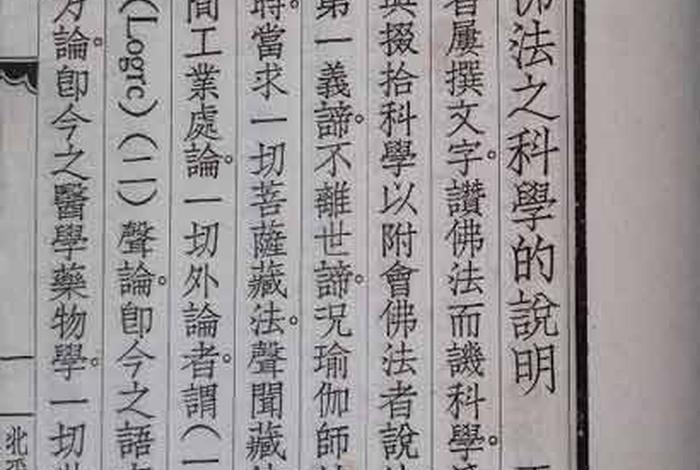 佛法之科學的說明
者屢撰文字。讚佛法而譏科學。
與掇拾科學以附會佛法者說
第一義諦。不離世諦。況瑜伽師
時。當求一切菩薩藏法。聲聞藏
間工業處論。一切外論者。謂(一
(Logrc)(二)聲論。卽今之語
方論。卽今之醫學藥物學。一切世
北平